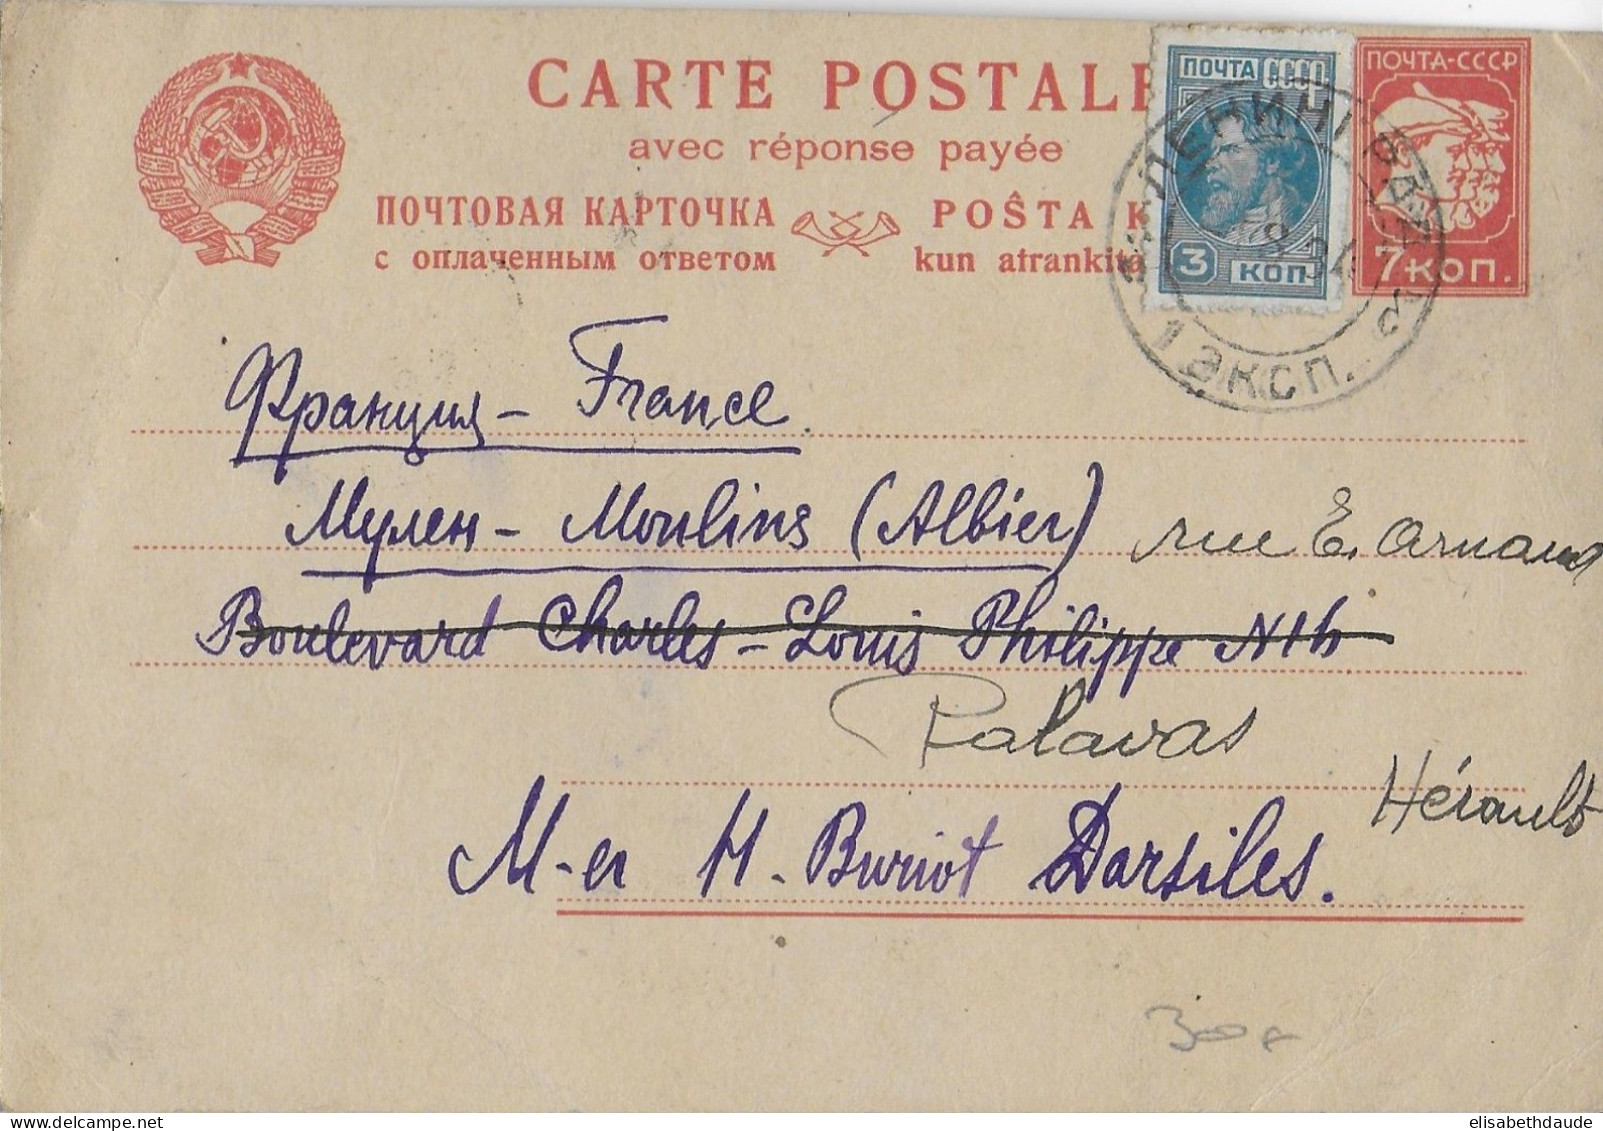 CARTE POSTALE
avec réponse payée
ПОЧТОВАЯ КАРТОЧКА
с оплаченным ответом
POŜTA K
kun afrankita
ПОЧТА СССР
3 КОП.
ПОЧТА-СССР
7 КОП.
ЛЕНИНГРАД
1 ЭКСП.
Франция - France.
Мулен - Moulins (Albier) rue E. Arnaud
Boulevard Charles - Louis Philippe N 16
Palavas
Hérault
M-er H. Buriot Darsiles.
elisabethdaude